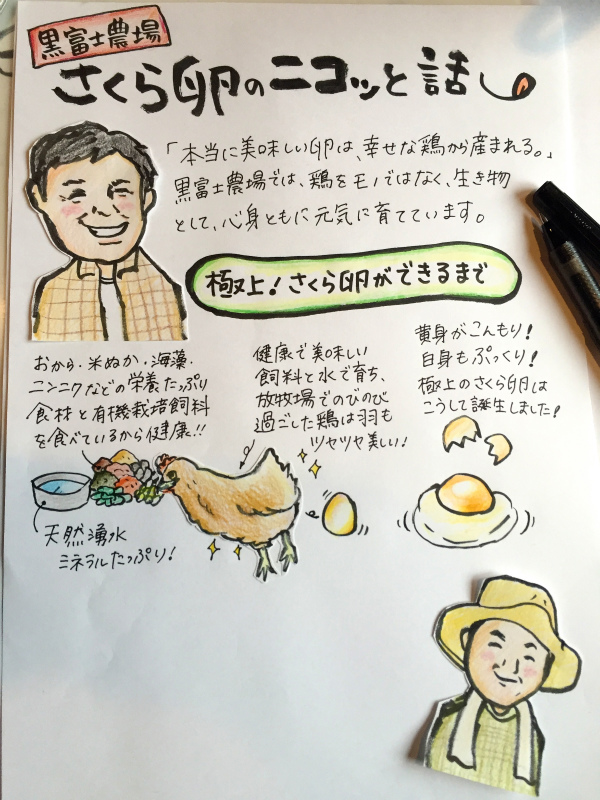 黒富士農場
さくら卵のニコッと話
「本当に美味しい卵は、幸せな鶏から産まれる。」
黒富士農場では、鶏をモノではなく、生き物
として、心身ともに元気に育てています。
極上!さくら卵ができるまで
おから・米ぬか・海藻・
ニンニクなどの栄養たっぷり
食材と有機栽培飼料
を食べているから健康!!
天然湧水
ミネラルたっぷり!
健康で美味しい
飼料と水で育ち、
放牧場でのびのび
過ごした鶏は羽も
ツヤツヤ美しい!
黄身がこんもり!
白身もぷっくり!
極上のさくら卵は
こうして誕生しました!